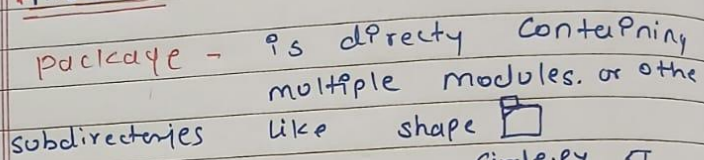 package - is directy containing
multiple modules. or othe
subdirecteries like shape
circle.py